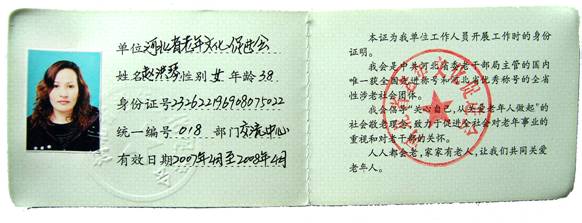 单位 河北省老年文化促进会
姓名 赵洪琴 性别 女 年龄 38
身份证号 232622196908075022
统一编号 018 部门 交流中心
有效日期 2007年4月至2008年4月
本证为我单位工作人员开展工作时的身份
证明。
我会是中共河北省委老干部局主管的国内
唯一获全国先进称号和河北省优秀称号的全省
性涉老社会团体。
我会倡导“关心自己,从关爱老年人做起”的
社会敬老理念,致力于促进全社会对老年事业的
重视和对老干部的关怀。
人人都会老,家家有老人,让我们共同关爱
老年人。